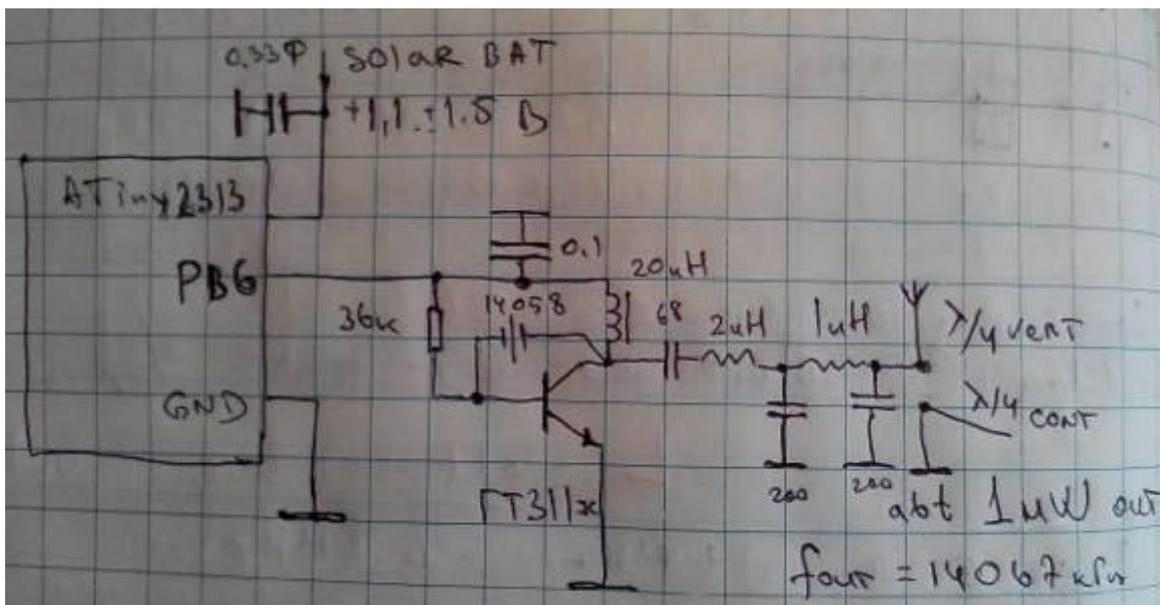 0,33Ф
SOlaR BAT
+1,1 ÷ 1.5 В
ATiny2313
PB6
GND
0.1
14058
36к
20uH
68
2uH
1uH
λ/4 VERT
λ/4 CONT
ГТ311ж
200
200
abt 1мW out
fout = 14067 кГц